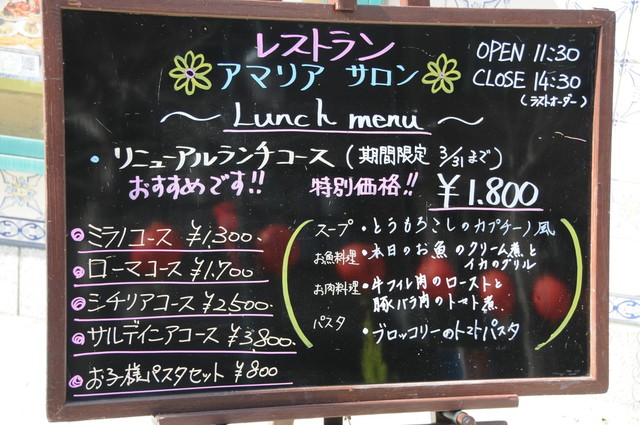 レストラン
アマリア サロン
OPEN 11:30
CLOSE 14:30
(ラストオーダー)
〜 Lunch menu 〜
・リニューアルランチコース (期間限定 3/31まで)
おすすめです!! 特別価格!! ¥1.800
ミラノコース ¥1.300.
ローマコース ¥1.700
シチリアコース ¥2500.
サルデイニアコース ¥3,800.
お子様パスタセット ¥800
スープ ・とうもろこしのカプチーノ風
お魚料理 ・本日のお魚のクリーム煮と
イカのグリル
お肉料理 ・牛フィレ肉のローストと
豚バラ肉のトマト煮
パスタ ・ブロッコリーのトマトパスタ